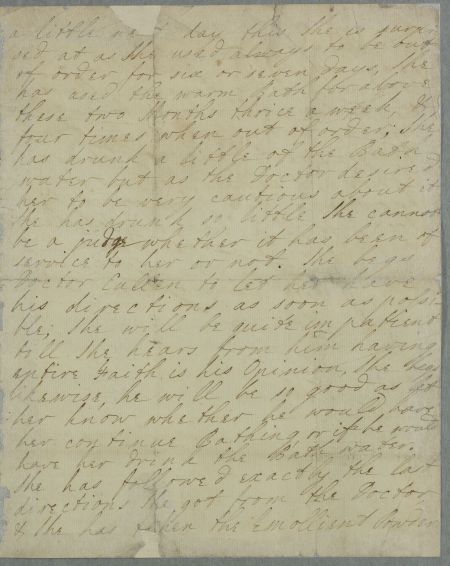 a little day this she is surpri
sed at as she used always to be out
of order for six or seven days, She
has used the warm Bath for above
these two Months thrice a week, &
four times when out of order; She
has drunk a little of the Bath
water but as the Doctor desired
her to be very cautious about it
She has drunk so little She cannot
be a judge whether it has been of
service to her or not. She begs
Doctor Cullen to let her have
his directions as soon as possi
ble; She will be quite impatient
till She hears from him having
entire Faith is his Opinion, She begs
likewise, he will be so good as let
her know whether he would have
her continue Bathing or if he would
have her drink the Bath water.
She has followed exactly the last
directions She got from the Doctor
& She has taken the Emollient Powder